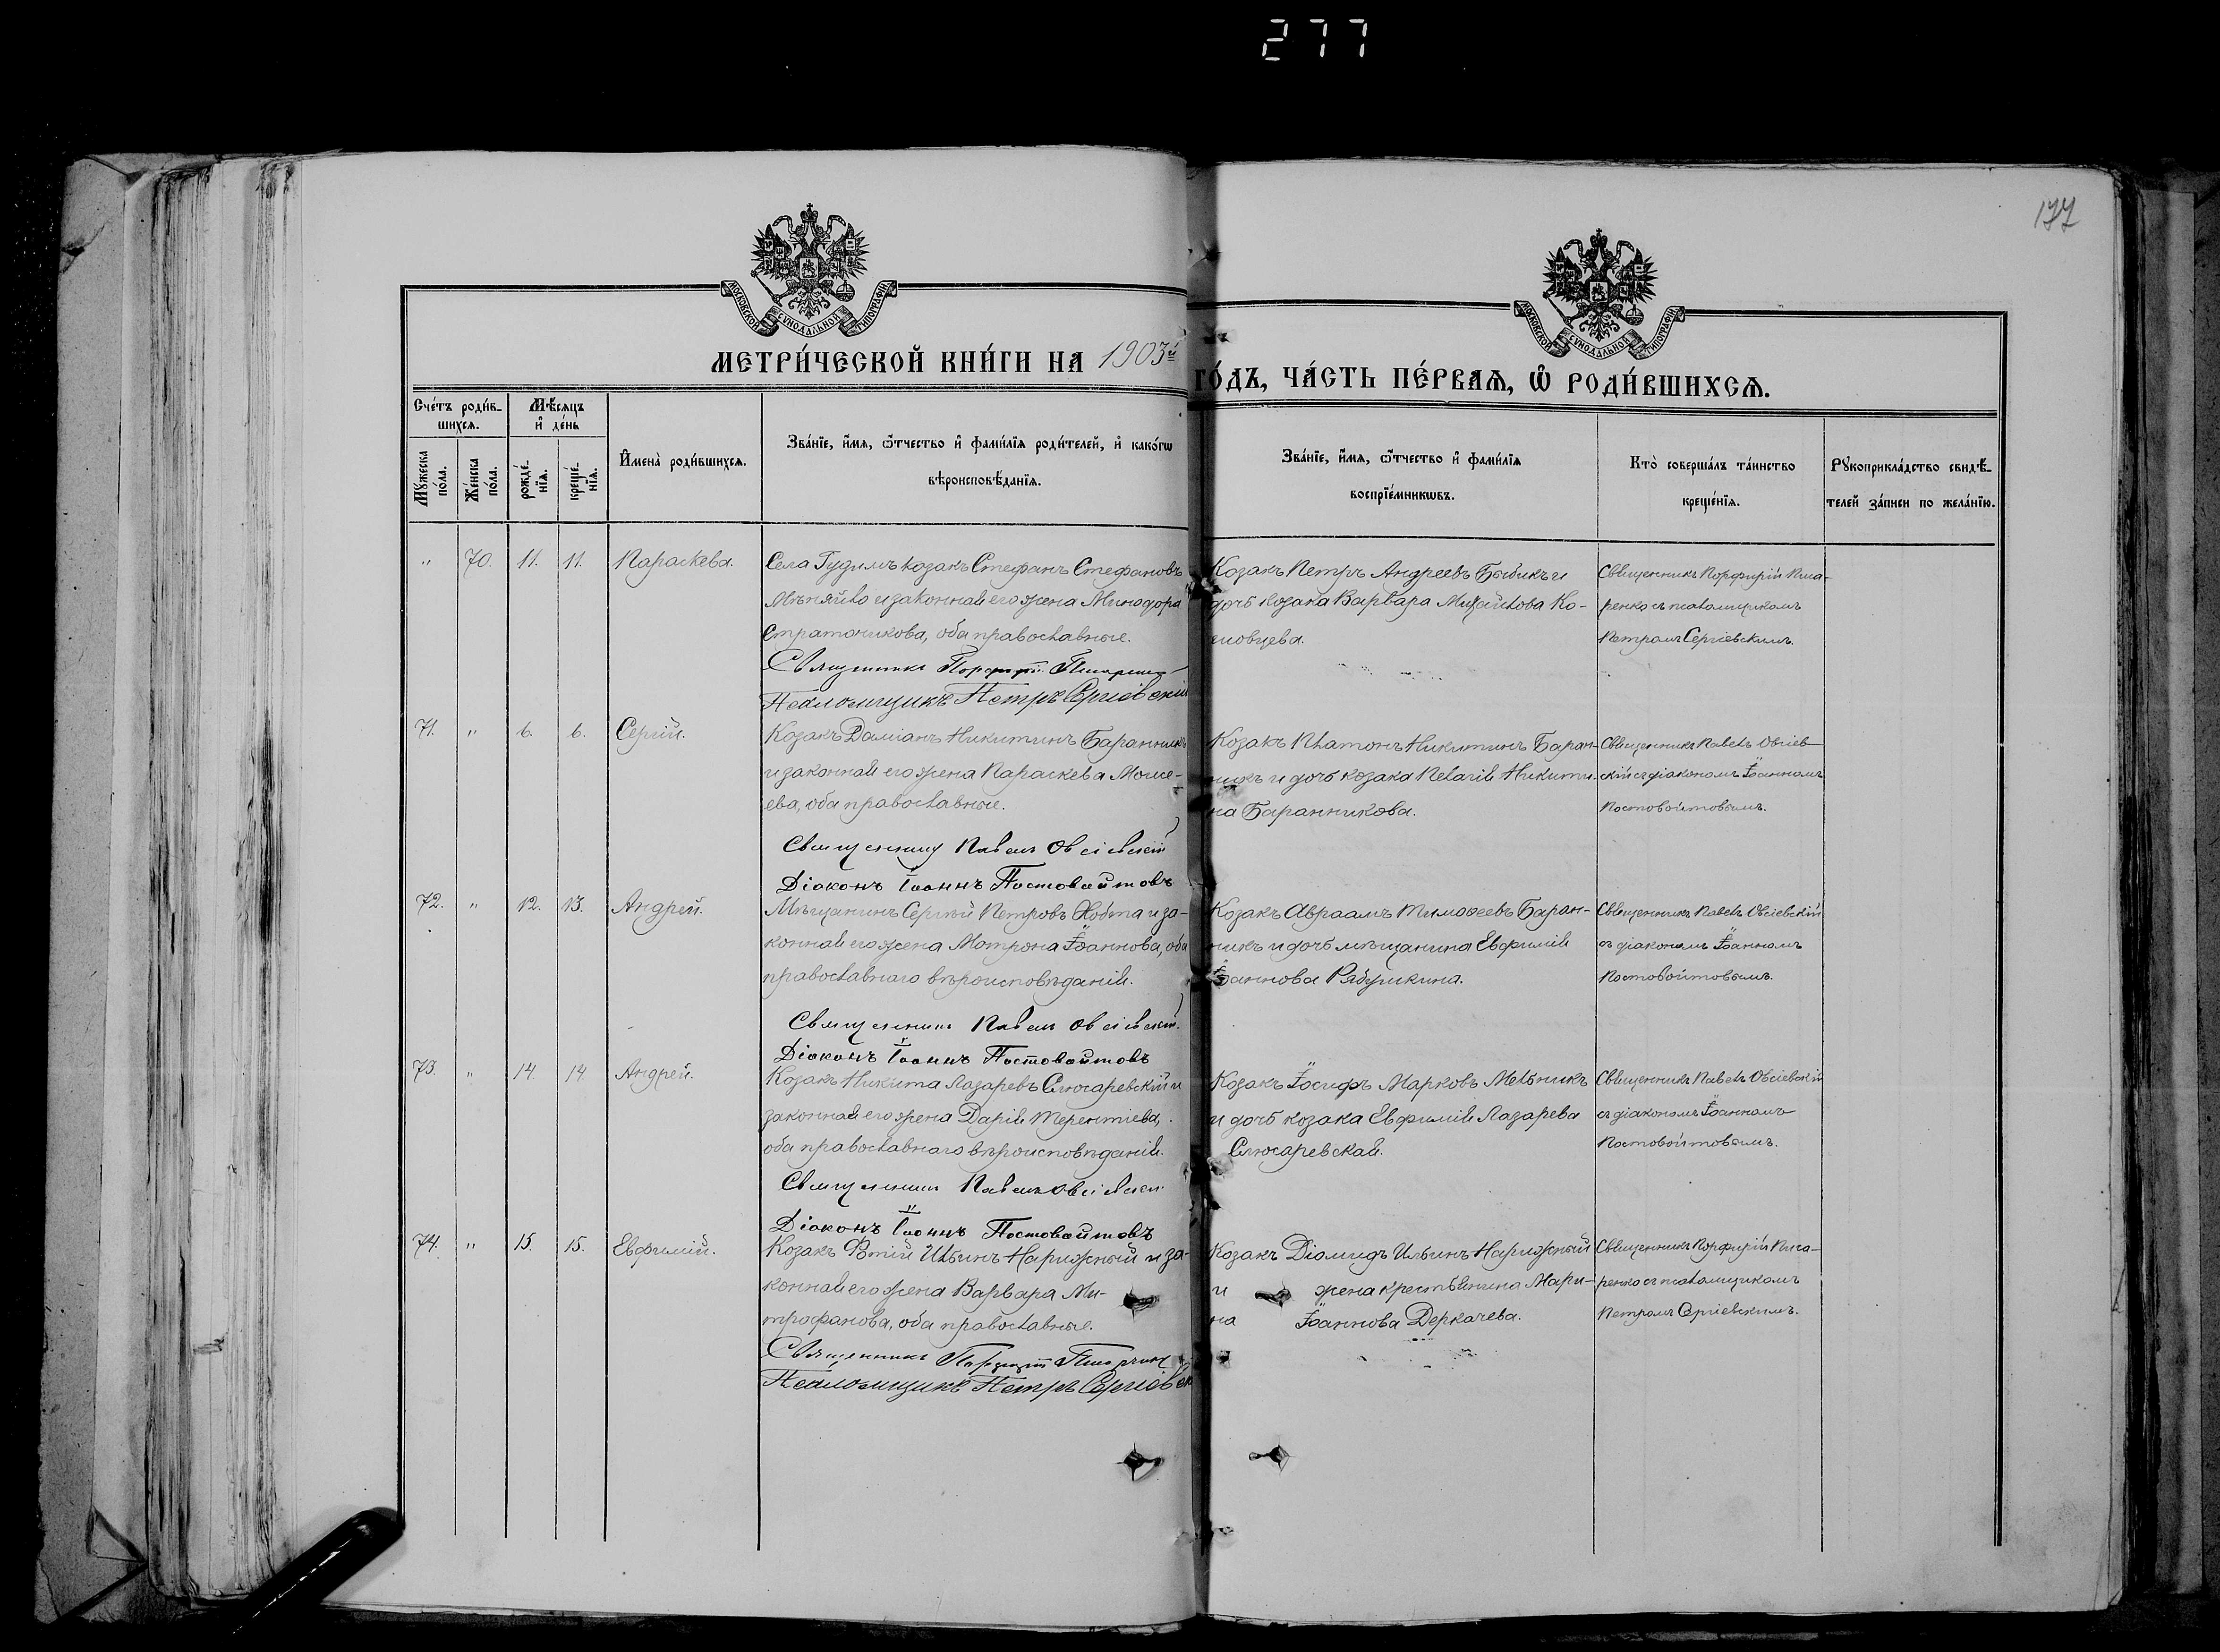 277
177
МОСКОВСКОЙ СѴНОДАЛЬНОЙ ТИПОГРАФІИ
МОСКОВСКОЙ СѴНОДАЛЬНОЙ ТИПОГРАФІИ
МЕТРИ́ЧЕСКОЙ КНИ́ГИ НА 1903й
ГО́ДЪ, ЧА́СТЬ ПЕ́РВАѦ, Ѡ РОДИ́ВШИХСѦ.
Сче́тъ роди́в-
шихсѧ.
Мѣ́сѧцъ
и҆ де́нь
Мꙋ́жеска
по́ла.
Же́нска
по́ла.
рожде́-
нїѧ.
креще́-
нїѧ.
И҆мена̀ роди́вшихсѧ.
Зва́нїе, и҆́мѧ, ѻ҆́тчество и҆ фами́лїѧ роди́телей, и҆ како́гѡ
вѣроисповѣ́данїѧ.
Зва́нїе, и҆́мѧ, ѻ҆́тчество и҆ фами́лїѧ
воспрїе́мникѡвъ.
Кто̀ соверша́лъ та́инство
креще́нїѧ.
Рꙋкоприкла́дство свидѣ́-
телей за́писи по жела́нїю.
" 70. 11. 11. Параскева.
Села Гудимъ козакъ Стефанъ Стефановъ
Мѣняйло и законная его жена Минодора
Стратоникова, оба православные.
Священникъ Порфирій Писаренко
Псаломщикъ Петръ Сергіевскій
Козакъ Петръ Андреевъ Бибикъ и
дочь козака Варвара Михайлова Ко-
Священникъ Порфирій Писа-
ренко съ псаломщикомъ
Петромъ Сергіевскимъ.
71. " 6. 6. Сергій.
Козакъ Даміанъ Никитинъ Баранникъ
и законная его жена Параскева Моисе-
ева, оба православные.
Священникъ Павелъ Овсіевскій
Діаконъ Іоаннъ Постовойтовъ
Козакъ Платонъ Никитинъ Баран-
никъ и дочь козака Пелагія Никити-
на Баранникова.
Священникъ Павелъ Овсіев-
скій съ діакономъ Іоанномъ
Постовойтовымъ.
72. " 12. 13. Андрей.
Мѣщанинъ Сергѣй Петровъ Хобта и за-
конная его жена Мотрона Іоаннова, оба
православнаго вѣроисповѣданія.
Священникъ Павелъ Овсіевскій.
Діаконъ Іоаннъ Постовойтовъ
Козакъ Авраамъ Тимоѳеевъ Баран-
никъ и дочь мѣщанина Евфимія
Іоаннова Рябушкина.
Священникъ Павелъ Овсіевскій
съ діакономъ Іоанномъ
Постовойтовымъ.
73. " 14. 14. Андрей.
Козакъ Никита Лазаревъ Слюсаревскій и
законная его жена Дарія Терентіева,
оба православнаго вѣроисповѣданія.
Священникъ Павелъ Овсіевскій
Діаконъ Іоаннъ Постовойтовъ
Козакъ Іосифъ Марковъ Мельникъ
и дочь козака Евфимія Лазарева
Слюсаревская.
Священникъ Павелъ Овсіевскій
съ діакономъ Іоанномъ
Постовойтовымъ.
74. " 15. 15. Евфимій.
Козакъ Фотій Ильинъ Нарижный и за-
конная его жена Варвара Ми-
трофанова, оба православные.
Священникъ Порфирій Писаренко
Псаломщикъ Петръ Сергіевскій
Козакъ Діомидъ Ильинъ Нарижный
и жена крестьянина Мари-
на Іоаннова Деркачева.
Священникъ Порфирій Писа-
ренко съ псаломщикомъ
Петромъ Сергіевскимъ.